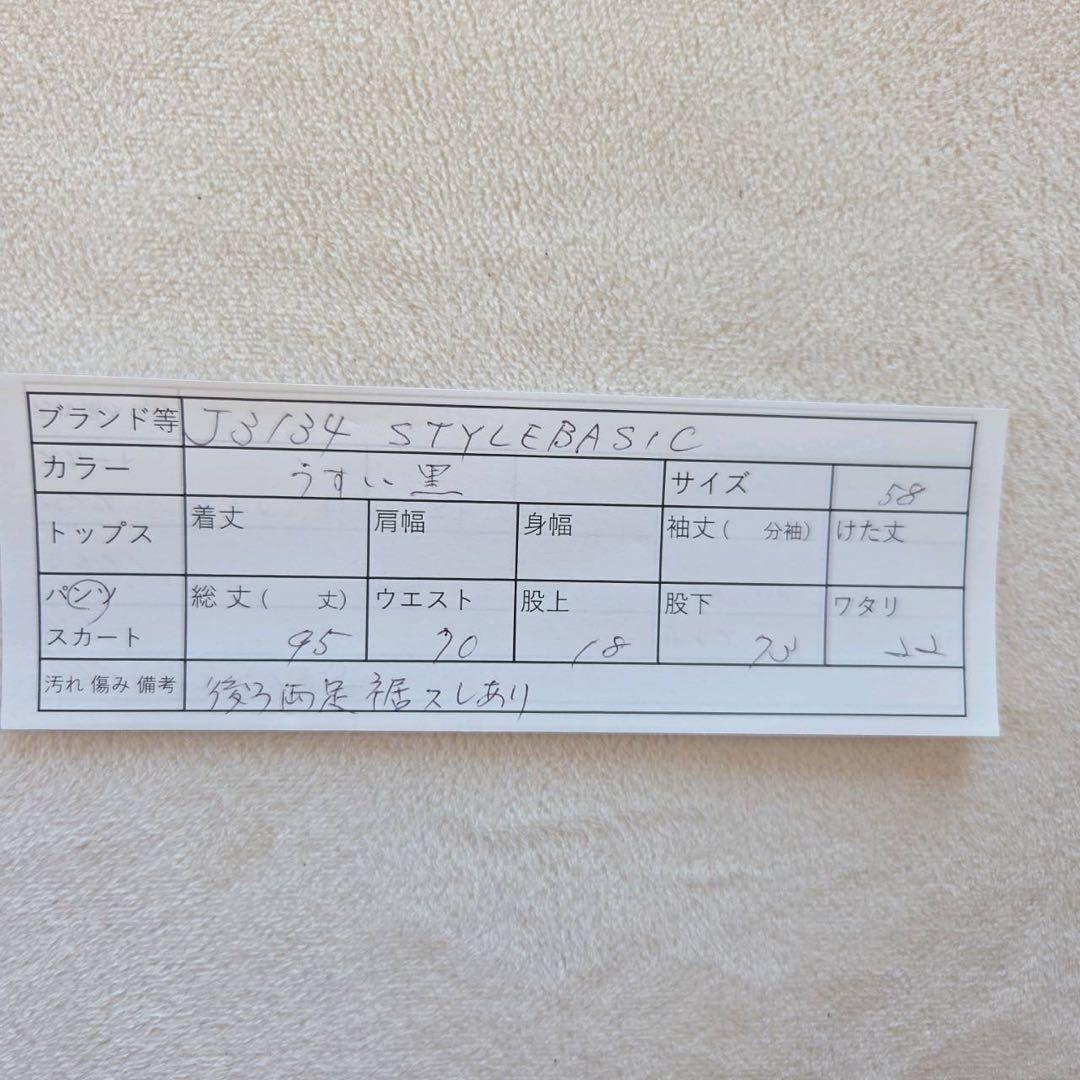 ブランド等 J3134 STYLEBASIC
カラー うすい黒 サイズ 58
トップス 着丈 肩幅 身幅 袖丈( 分袖) けた丈
パンツ 総丈( 丈) ウエスト 股上 股下 ワタリ
スカート 95 70 18 73 22
汚れ 傷み 備考 後ろ両足 裾スレあり